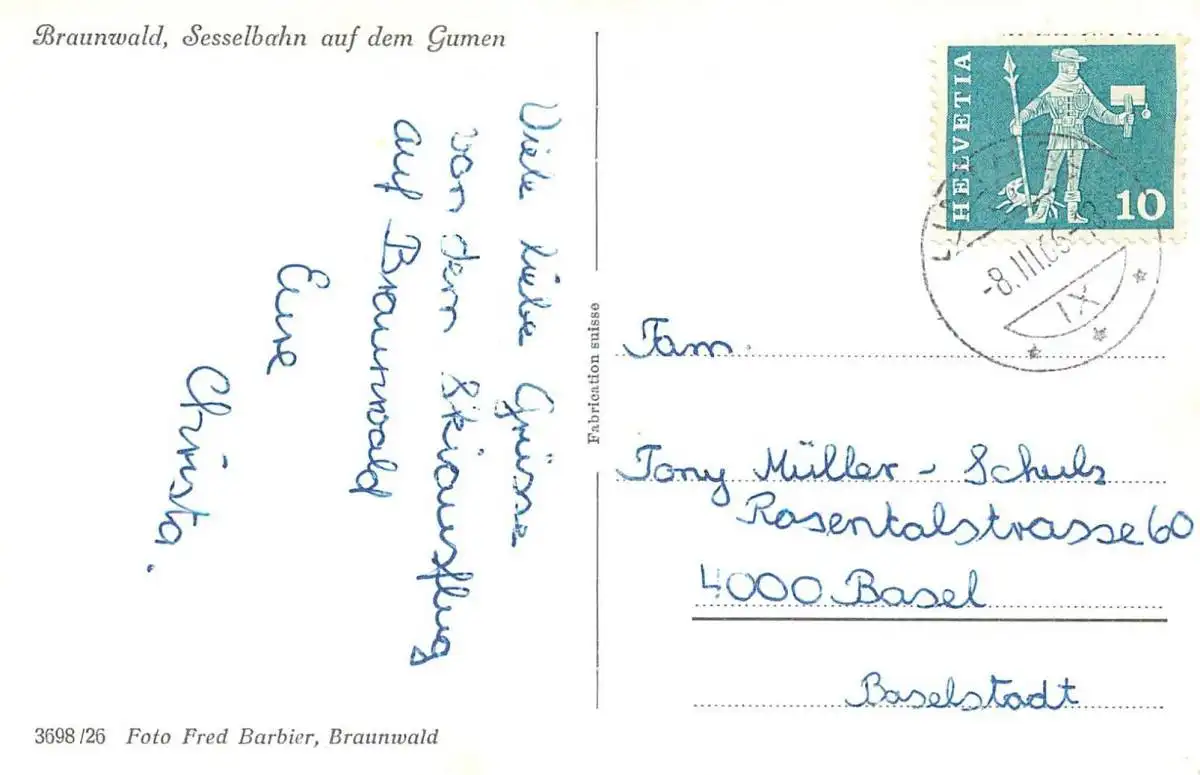 Braunwald, Sesselbahn auf dem Gumen
Viele liebe Grüsse
von dem Skiausflug
auf Braunwald
Eure
Christa.
Fabrication suisse
HELVETIA
10
-8.III.66-18
IX
Fam.
Tony Müller - Schulz
Rosentalstrasse 60
4000 Basel
Baselstadt
3698/26 Foto Fred Barbier, Braunwald